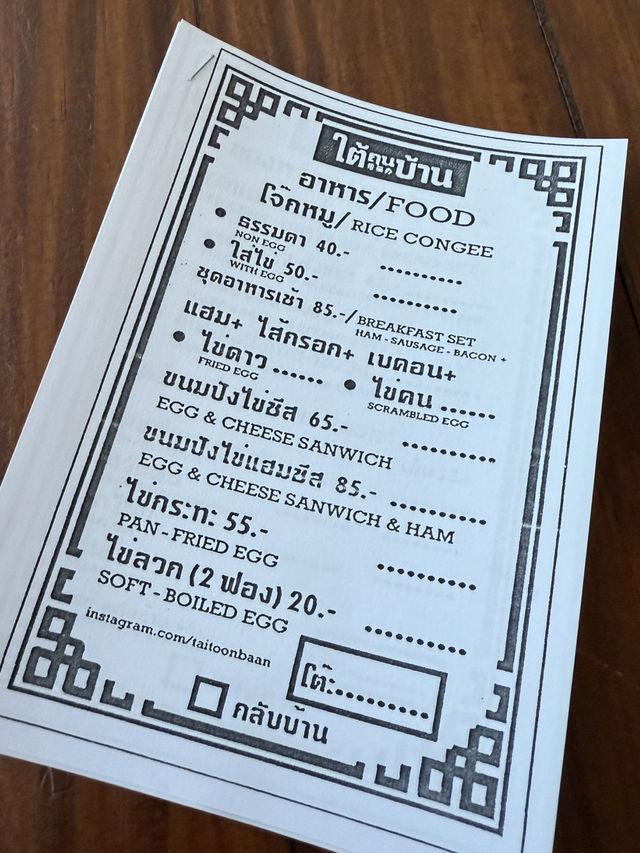 ใต้ถุนบ้าน
อาหาร/FOOD
โจ๊กหมู/RICE CONGEE
• ธรรมดา 40.- ..........
NON EGG
• ใส่ไข่ 50.- ..........
WITH EGG
ชุดอาหารเช้า 85.-/BREAKFAST SET
HAM - SAUSAGE - BACON +
แฮม+ ไส้กรอก+ เบคอน+
• ไข่ดาว ...... • ไข่คน ......
FRIED EGG SCRAMBLED EGG
ขนมปังไข่ชีส 65.- ..........
EGG & CHEESE SANWICH
ขนมปังไข่แฮมชีส 85.- ..........
EGG & CHEESE SANWICH & HAM
ไข่กระทะ 55.- ..........
PAN - FRIED EGG
ไข่ลวก (2 ฟอง) 20.- ..........
SOFT - BOILED EGG
instagram.com/taitoonbaan
โต๊ะ..........
กลับบ้าน